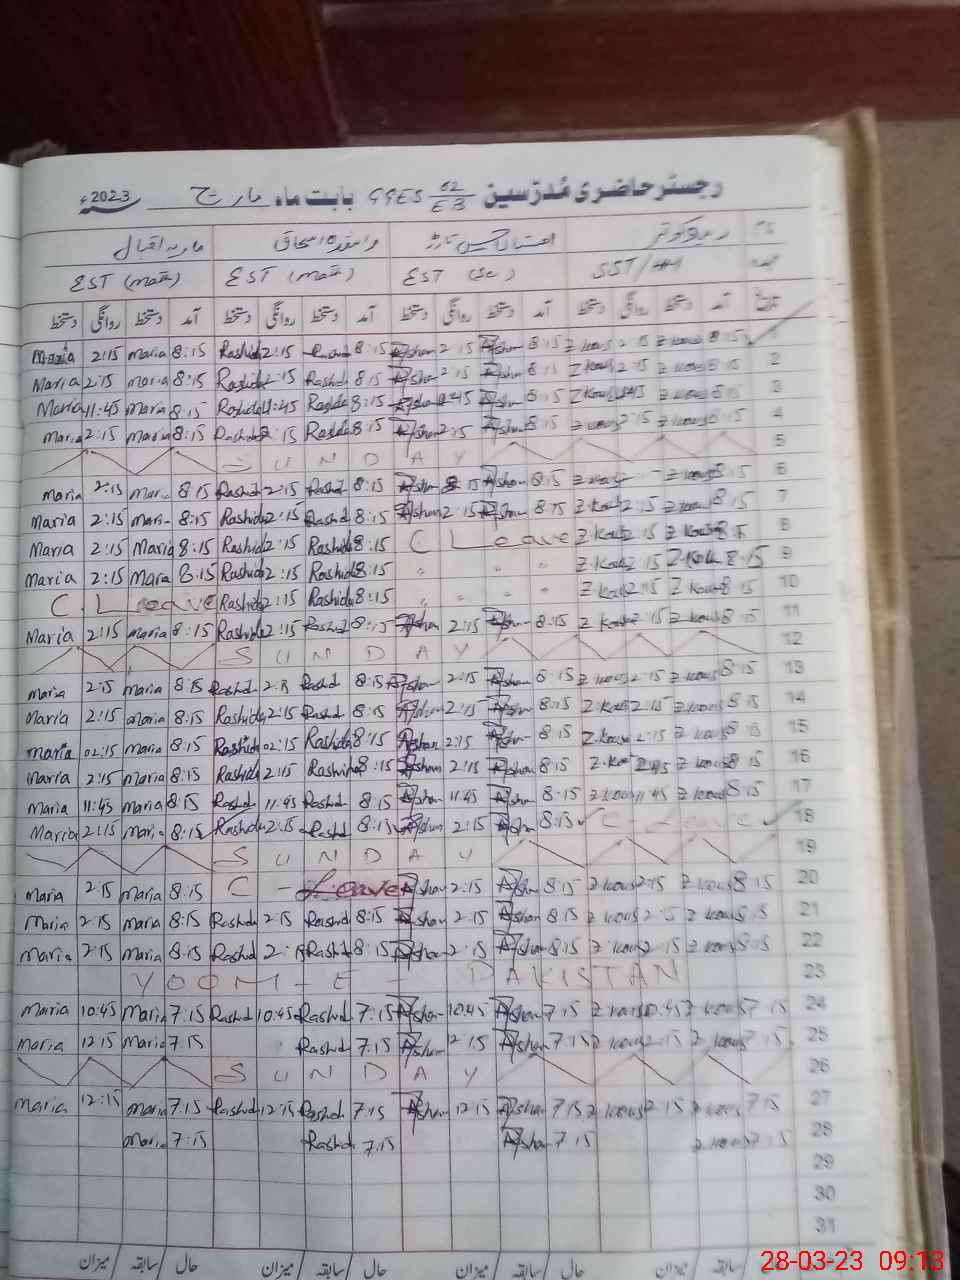 رجسٹر حاضری مُدرّسین GGES 62/EB بابت ماہ مارچ 2023ء
نام ماریہ اقبال
EST (math) EST (math) EST (Sc) SST/HM
تاریخ آمد دستخط روانگی دستخط آمد دستخط روانگی دستخط آمد دستخط روانگی دستخط آمد دستخط روانگی دستخط
Maria 2:15 maria 8:15 Rashida 2:15 8:15 Afshan 2:15 Afshan 8:15 2:15 8:15 1
Maria 2:15 maria 8:15 Rashida 2:15 Rashida 8:15 Afshan 2:15 Afshan 8:15 2:15 8:15 2
Maria 11:45 Maria 8:15 Rashida 11:45 Rashida 8:15 Afshan 11:45 Afshan 8:15 11:45 8:15 3
Maria 2:15 Maria 8:15 Rashida 2:15 Rashida 8:15 Afshan 2:15 Afshan 8:15 2:15 8:15 4
SUNDAY 5
maria 2:15 maria 8:15 Rashid 2:15 Rashid 8:15 Afshan Afshan 8:15 8:15 6
Maria 2:15 Maria 8:15 Rashida 2:15 Rashid 8:15 Afshan 2:15 Afshan 8:15 Z.Kous 2:15 8:15 7
Maria 2:15 Maria 8:15 Rashida 2:15 Rashida 8:15 C Leave Z.Kous 2:15 Z Kous 8:15 8
Maria 2:15 Maria 8:15 Rashida 2:15 Rashida 8:15 " " " Z.Kous 2:15 Z.Kous 8:15 9
C. Leave Rashida 2:15 Rashida 8:15 " " " " Z Kous 2:15 Z Kous 8:15 10
Maria 2:15 maria 8:15 Rashida 2:15 Rashid 8:15 Afshan 2:15 Afshan 8:15 Z Kous 2:15 Z Kous 8:15 11
SUNDAY 12
maria 2:15 maria 8:15 Rashid Rashid 8:15 Afshan 2:15 Afshan 8:15 Z Kous 2:15 Z Kous 8:15 13
Maria 2:15 maria 8:15 Rashida 2:15 Rashid 8:15 Afshan 2:15 Afshan 8:15 Z.Kous 2:15 Z Kous 8:15 14
maria 02:15 maria 8:15 Rashida 02:15 Rashida 8:15 Afshan 2:15 Afshan 8:15 Z.Kous 2:15 Z Kous 8:15 15
Maria 2:15 maria 8:15 Rashida 2:15 Rashida 8:15 Afshan 2:15 Afshan 8:15 Z.Kous Z Kous 8:15 16
Maria 11:45 maria 8:15 Rashid 11:45 Rashid 8:15 Afshan 11:45 Afshan 8:15 Z Kous 11:45 Z Kous 8:15 17
Maria 2:15 Maria 8:15 Rashida 2:15 Rashid 8:15 Afshan 2:15 Afshan 8:15 C - Leave 18
SUNDAY 19
maria 2:15 maria 8:15 C - Leave Afshan 2:15 Afshan 8:15 Z Kous 2:15 Z Kous 8:15 20
Maria 2:15 maria 8:15 Rashid 2:15 Rashid 8:15 Afshan 2:15 Afshan 8:15 Z Kous 2:15 Z Kous 8:15 21
maria 2:15 maria 8:15 Rashid 2:15 Rashid 8:15 Afshan 2:15 Afshan 8:15 Z Kous 2:15 Z Kous 8:15 22
YOOM - E - PAKISTAN 23
Maria 10:45 Maria 7:15 Rashid 10:45 Rashid 7:15 Afshan 10:45 Afshan 7:15 Z Kous 10:45 Z Kous 7:15 24
Maria 12:15 Maria 7:15 Rashid 7:15 Afshan 12:15 Afshan 7:15 Z Kous 12:15 Z Kous 7:15 25
SUNDAY 26
Maria 12:15 maria 7:15 Rashid 12:15 Rashid 7:15 Afshan 12:15 Afshan 7:15 Z Kous 12:15 Z Kous 7:15 27
maria 7:15 Rashid 7:15 Afshan 7:15 Z Kous 7:15 28
29
30
31
حال / سابقہ / میزان حال / سابقہ / میزان حال / سابقہ / میزان
28-03-23 09:13